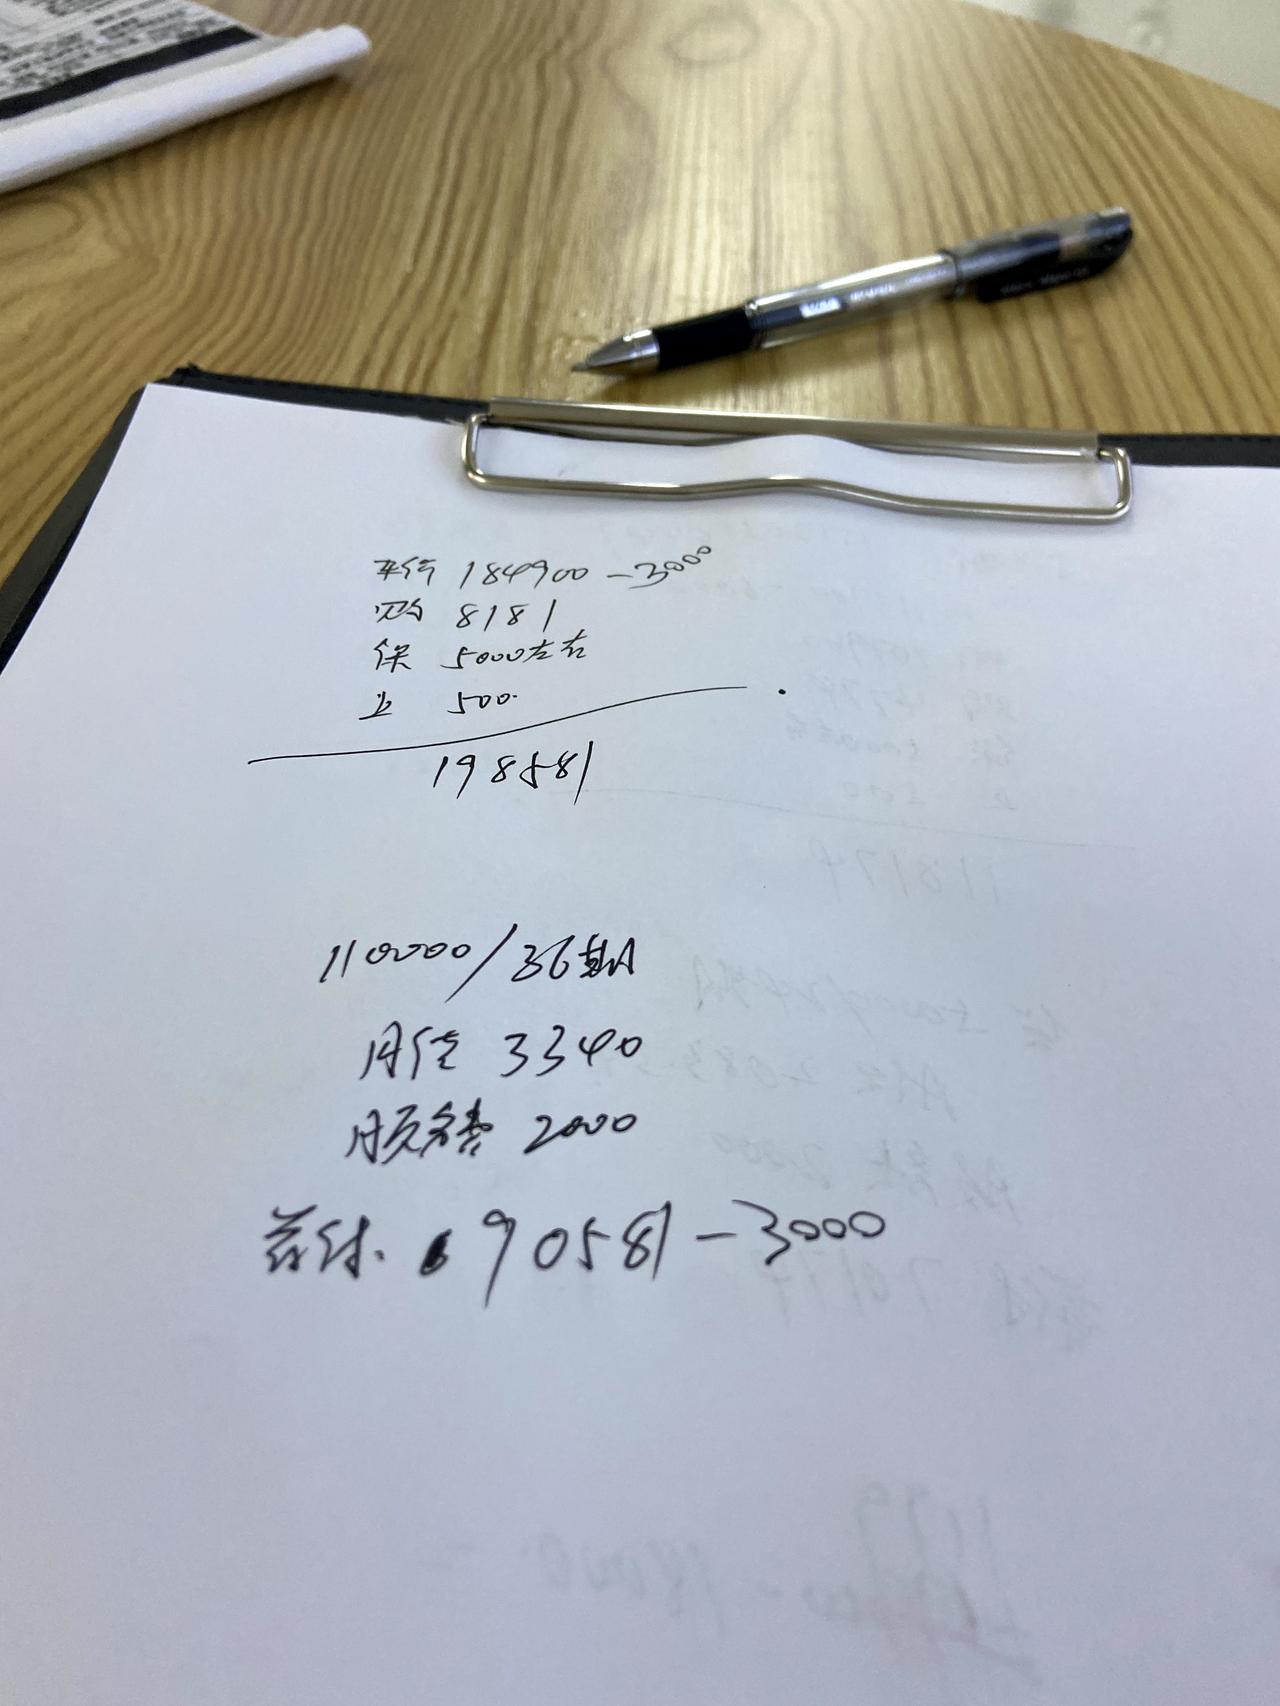 车价 184900-3000
购 8181
保 5000左右
上 500.
198581
110000/36期
月佳 3340
服务费 2000
首付. 90581-3000